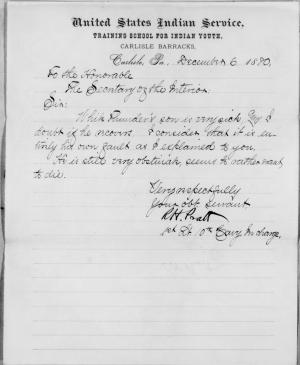 United States Indian Service,
TRAINING SCHOOL FOR INDIAN YOUTH,
CARLISLE BARRACKS,
Carlisle, Pa., December 6 1880.
To the Honorable
The Secretary of the Interior:
Sir:
White Thunder's son is very sick, & I
doubt if he recovers. I consider that it is en-
tirely his own fault as I explained to you.
He is still very obstinate, seems to rather want
to die.
Very respectfully
Your obt. servant
R.H. Pratt
1st Lt. 10th Cavy. In charge.